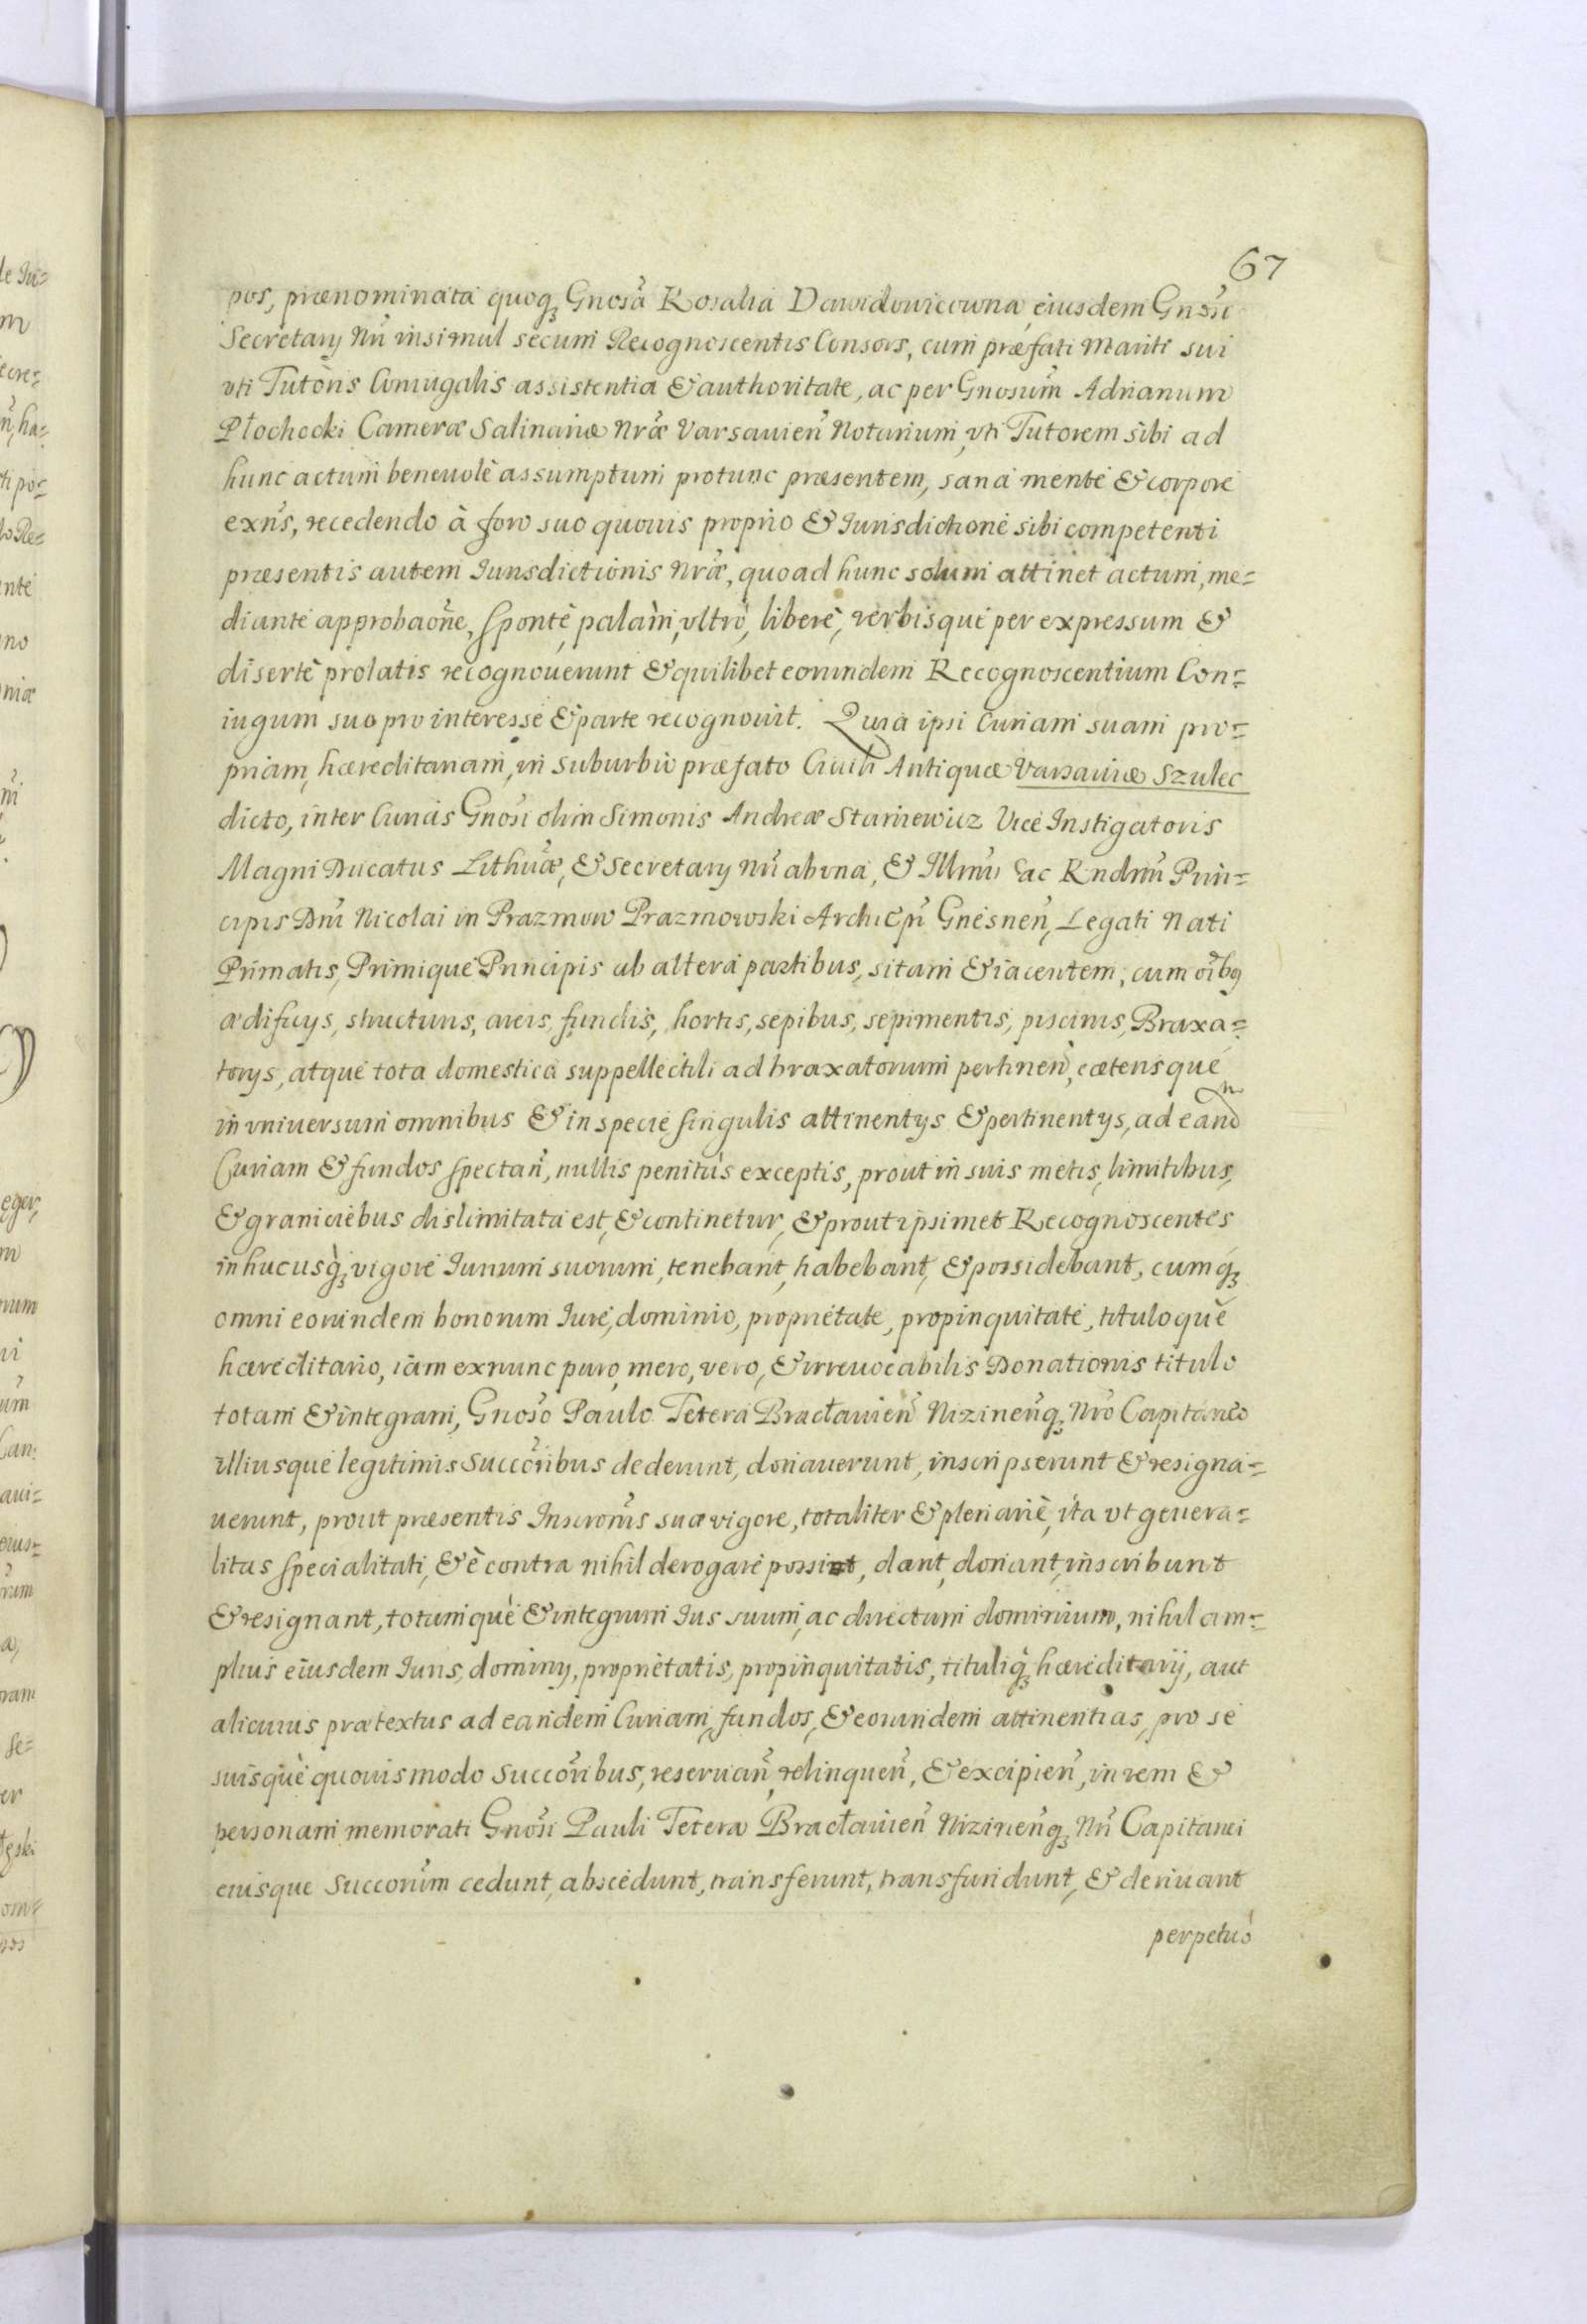 67
pos, prænominata quoq₃ Gnosa Rosalia Dawidowicowna, eiusdem Gnosi
Secretary Nri insimul secum Recognoscentis Consors, cum præfati Mariti sui
vti Tutoris Coniugalis assistentia & authoritate, ac per Gnosum Adrianum
Płochocki Cameræ Salinariæ Nræ Varsauien Notarium, vti Tutorem sibi ad
hunc actum beneuolè assumptum protunc præsentem, sana mente & corpore
exns, recedendo à foro suo quouis proprio & Iurisdictione sibi competenti
præsentis autem Iurisdictionis Nræ, quoad hunc solum attinet actum, me=
diante approbaone, spontè, palàm, vltrò, liberè, verbisque per expressum &
disertè prolatis recognouerunt & quilibet eorundem Recognoscentium Con=
iugum suo pro interesse & parte recognouit. Quia ipsi Curiam suam pro=
priam, hæreditariam, in suburbio præfato Ciuitt Antiquæ Varsauiæ Szulec
dicto, inter Curias Gnosi olim Simonis Andreæ Staniewicz Vice Instigatoris
Magni Ducatus Lithuæ, & Secretary Nri ab vna, & Illmi ac Rndmi Prin=
cipis Dni Nicolai in Prazmow Prazmowski ArchiEpi Gnesnen, Legati Nati
Primatis, Primique Principis ab altera partibus, sitam & iacentem, cum oibq
ædificys, structuris, areis, fundis, hortis, sepibus, sepimentis, piscinis, Braxa=
torys, atque tota domestica suppellectili ad braxatorum pertinen, cæterisque
in vniuersum omnibus & in specie singulis attinentys & pertinentys, ad eand
Curiam & fundos spectan, nullis penitùs exceptis, prout in suis metis, limitibus,
& graniciebus dislimitata est, & continetur, & prout ipsimet Recognoscentes
in hucusq₃ vigore Iurium suorum, tenebant, habebant, & possidebant, cumq₃
omni eorundem bonorum Iure, dominio, proprietate, propinquitate, tituloque
hæreditario, iam exnunc puro, mero, vero, & irreuocabilis Donationis titulo
totam & integram, Gnoso Paulo Tetera Bracłauien Nizinenq₃ Nro Capitaneo
illiusque legitimis Succoribus dederunt, donauerunt, inscripserunt & resigna=
uerunt, prout præsentis Inscronis suæ vigore, totaliter & plenariè, ita vt genera=
litas specialitati, & è contra nihil derogare possint, dant, donant, inscribunt
& resignant, totumquè & integrum Ius suum, ac directum dominium, nihil am=
plius eiusdem Iuris, dominy, proprietatis, propinquitatis, tituliq₃ hæreditarij, aut
alicuius prætextus ad eandem Curiam, fundos, & eorundem attinentias, pro se
suisquè quouismodo Succoribus, reseruan, relinquen, & excipien, in rem &
personam memorati Gnosi Pauli Tetera Bracłauien Nizinenq₃ Nri Capitanei
eiusque Succorum cedunt, abscedunt, transferunt, transfundunt, & deriuant
perpetuò